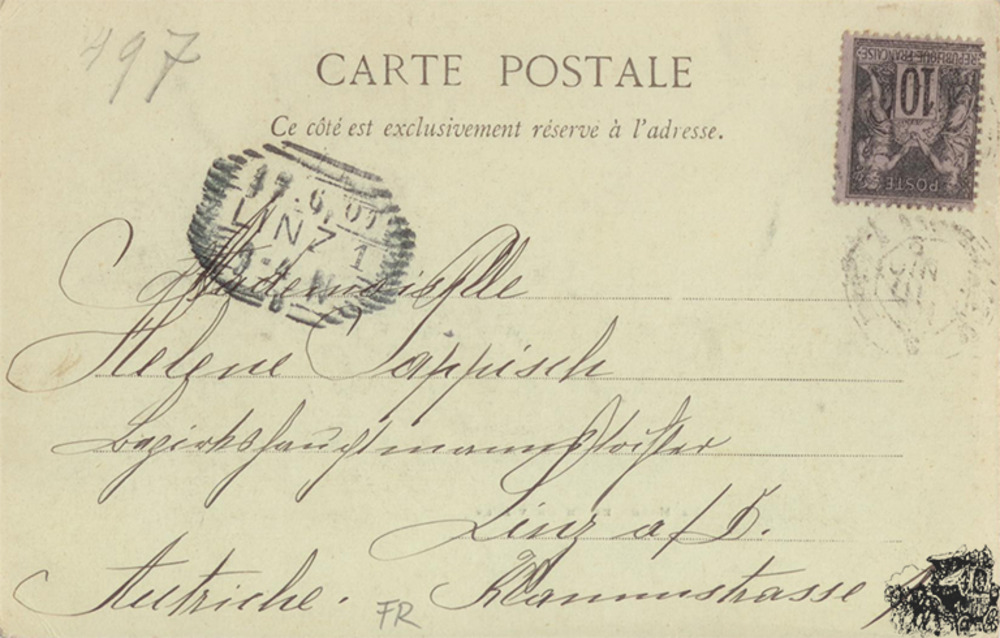 497
CARTE POSTALE
Ce côté est exclusivement réservé à l'adresse.
RÉPUBLIQUE FRANÇAISE
10
POSTE
6.01
LINZ 1
Mademoiselle
Helene Tappisch
Bezirkshauptmannstochter
Linz a/D.
Autriche. Baumstrasse
FR